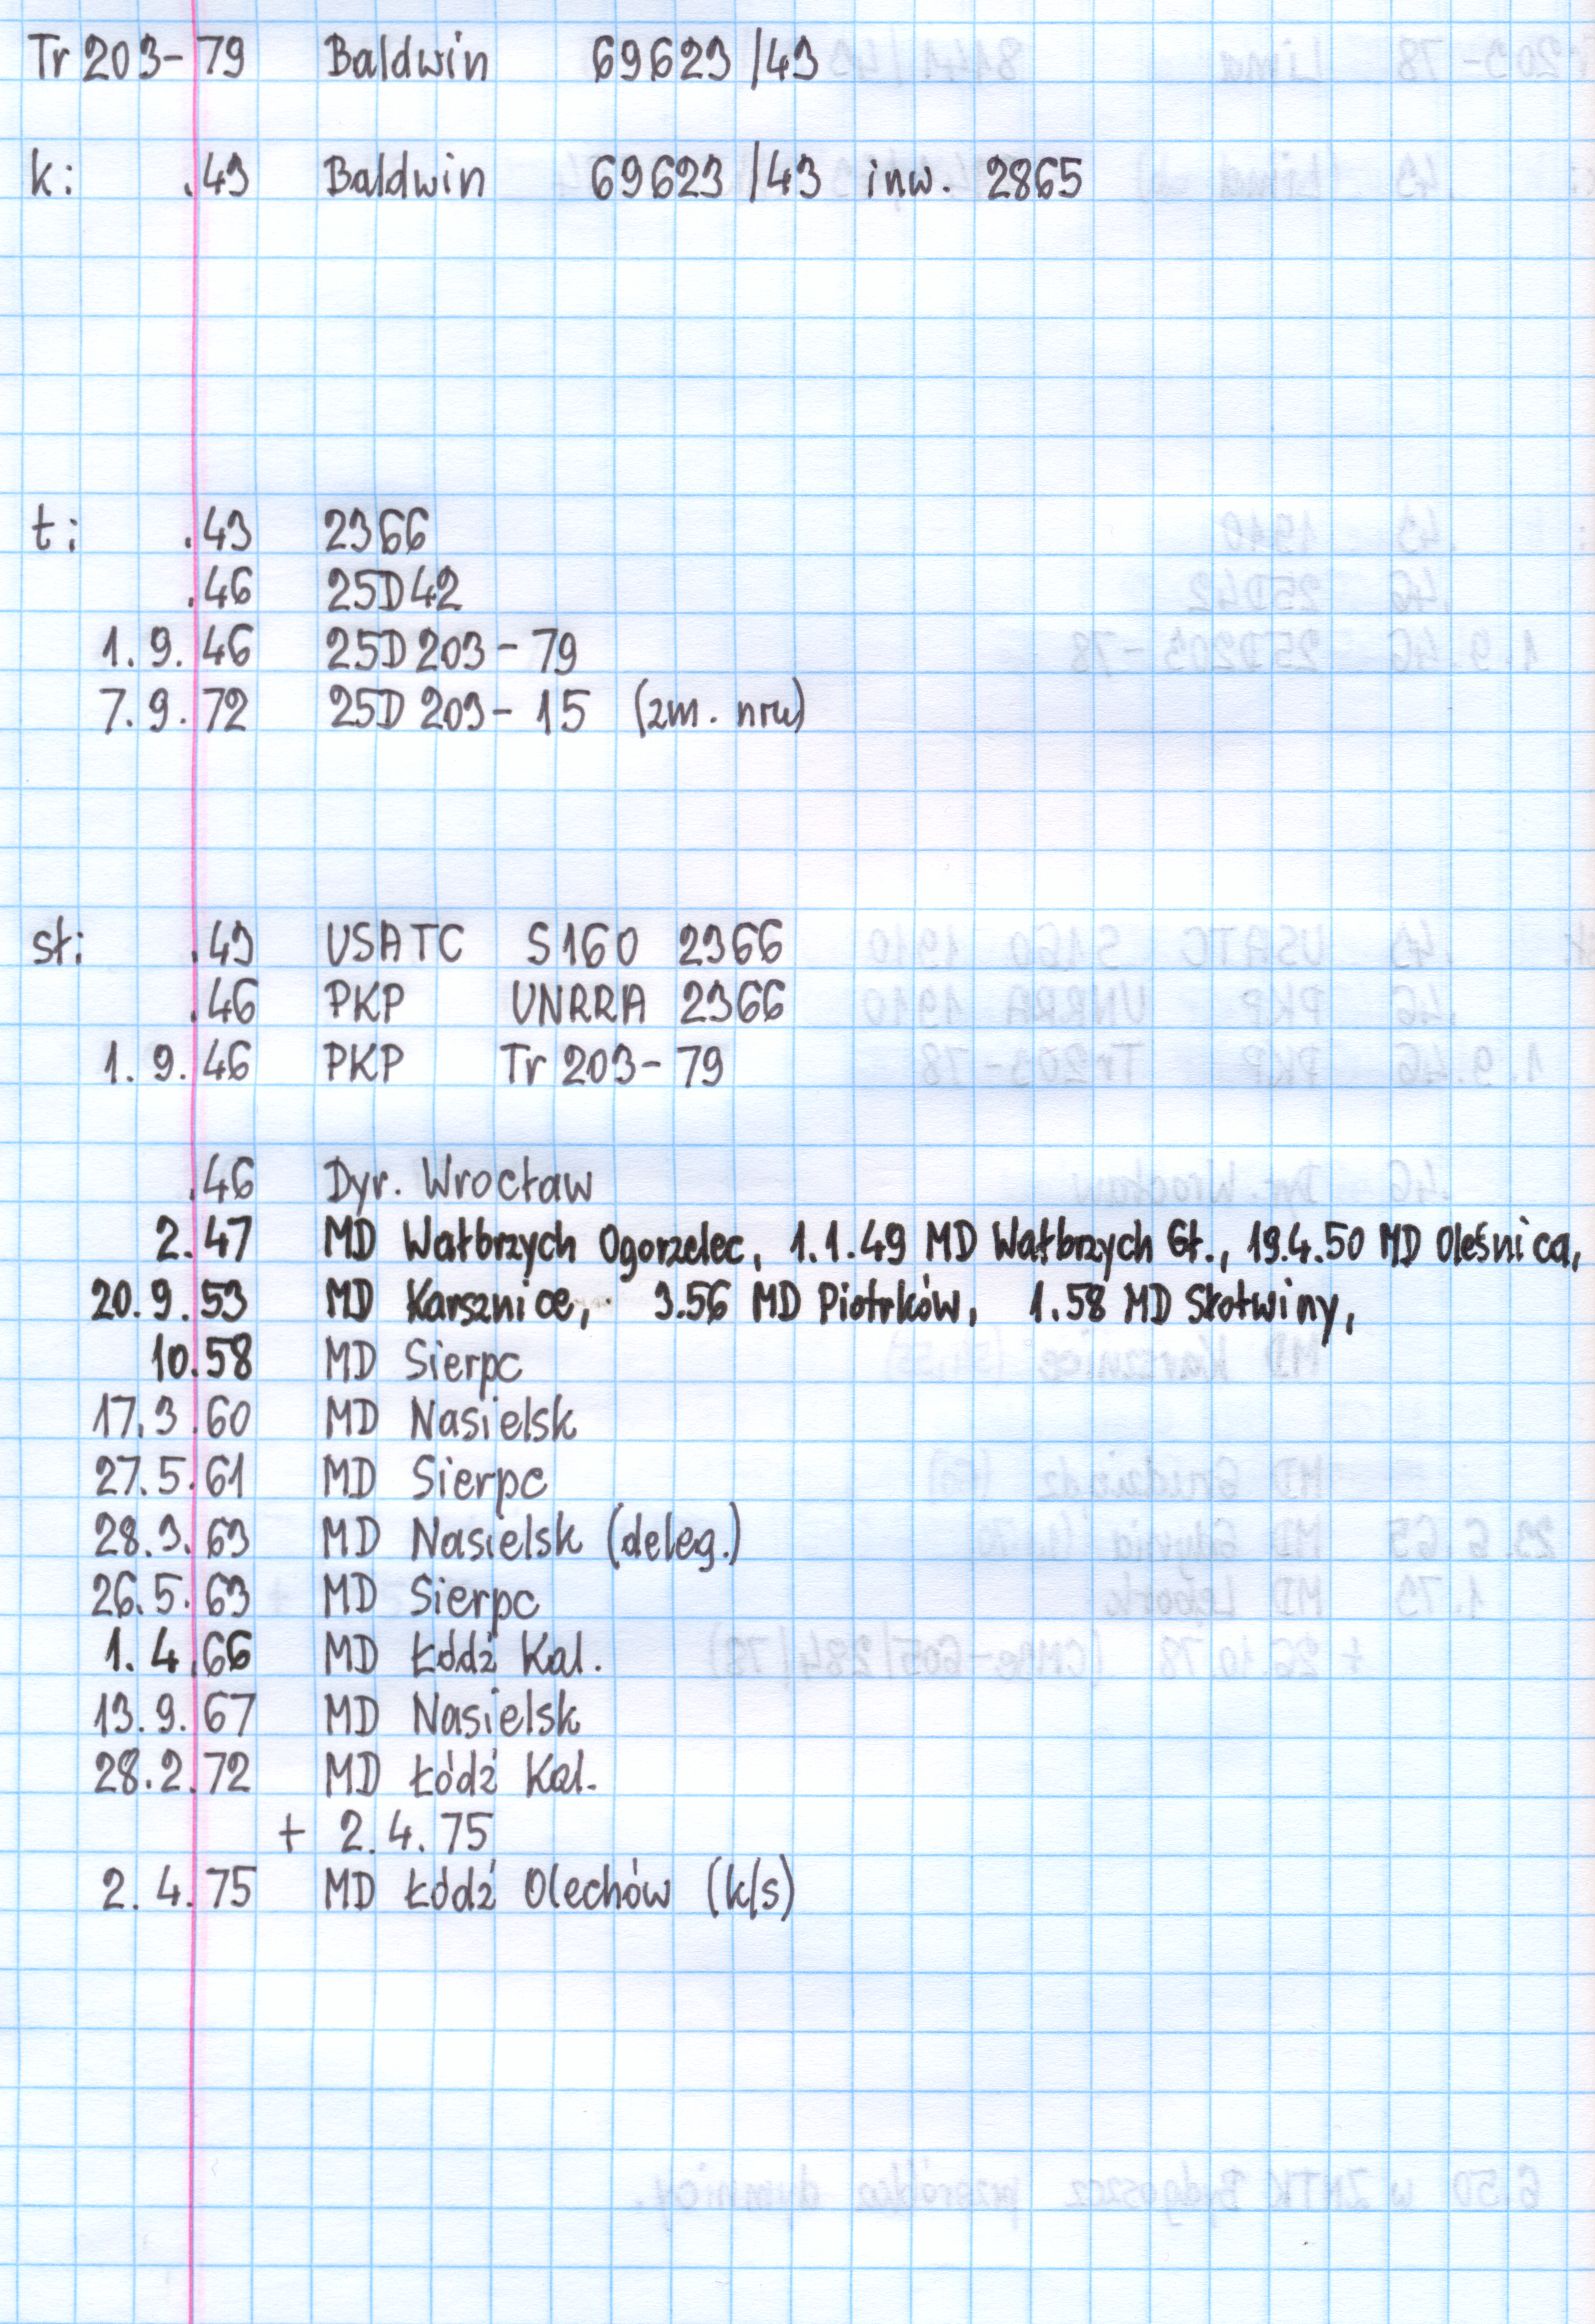 Tr 203-79 Baldwin 69623/43
k: .43 Baldwin 69623/43 inw. 2865
t: .43 2366
.46 25D42
1.9.46 25D203-79
7.9.72 25D203-15 (zm. nru)
st: .43 USATC S160 2366
.46 PKP UNRRA 2366
1.9.46 PKP Tr 203-79
.46 Dyr. Wrocław
2.47 MD Wałbrzych Ogorzelec, 1.1.49 MD Wałbrzych Gł., 19.4.50 MD Oleśnica,
20.9.53 MD Karsznice, 3.56 MD Piotrków, 1.58 MD Skotwiny,
10.58 MD Sierpc
17.3.60 MD Nasielsk
27.5.61 MD Sierpc
28.3.63 MD Nasielsk (deleg.)
26.5.63 MD Sierpc
1.4.66 MD Łódź Kal.
13.9.67 MD Nasielsk
28.2.72 MD Łódź Kal.
+ 2.4.75
2.4.75 MD Łódź Olechów (k/s)